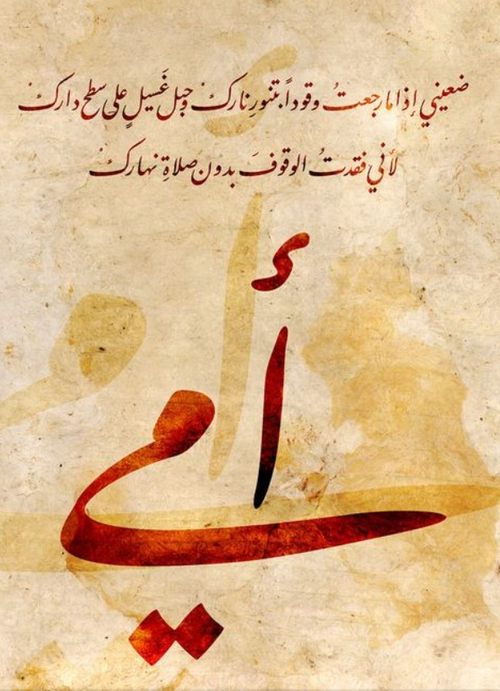 ضعيني إذا ما رجعتُ وقوداً بتنورِ ناركْ وحبل غَسيلٍ على سطح داركْ
لأني فقدتُ الوقوفَ بدون صلاةِ نهاركْ
أمي